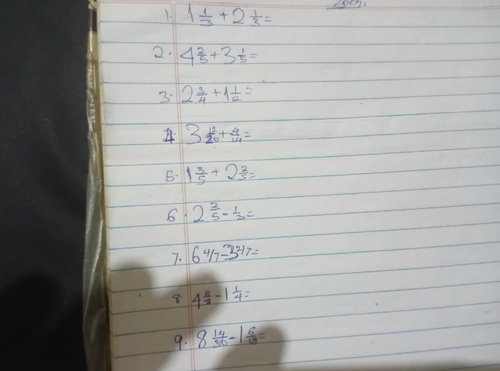 1. 1 1/3 + 2 1/3 =
2. 4 2/5 + 3 1/5 =
3. 2 3/4 + 1 1/2 =
4. 3 12/20 + 4/14 =
5. 1 3/5 + 2 2/5 =
6. 2 2/5 - 1/3 =
7. 6 4/7 - 3 2/7 =
8. 4 6/8 - 1 1/4 =
9. 8 14/30 - 1